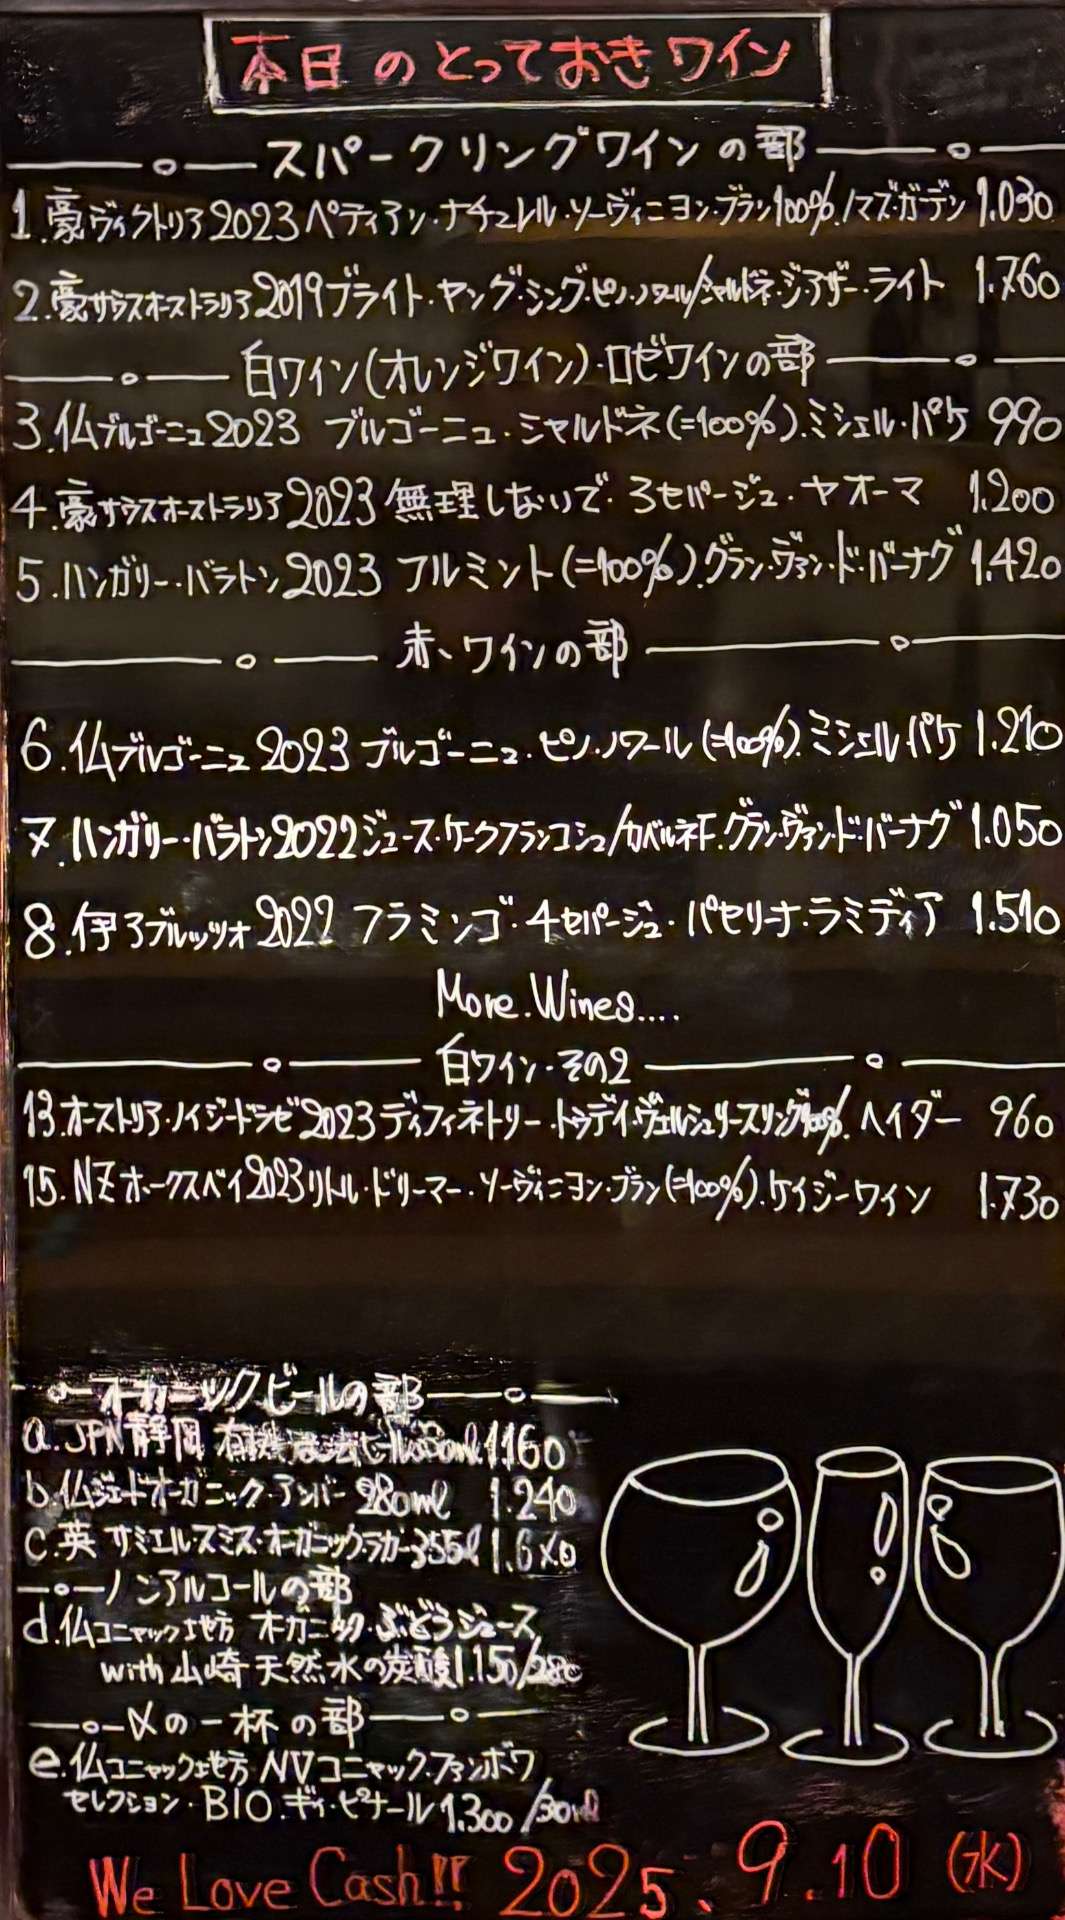 本日のとっておきワイン
スパークリングワインの部
1.豪ヴィクトリア2023ペティアン・ナチュレル・ソーヴィニヨン・ブラン100%.ノマズ・ガーデン 1.030
2.豪サウスオーストラリア2019ブライト・ヤング・シング・ピノ・ノワール/シャルドネ・ジ・アザー・ライト 1.760
白ワイン(オレンジワイン)・ロゼワインの部
3.仏ブルゴーニュ2023 ブルゴーニュ・シャルドネ(=100%).ミシェル・パケ 990
4.豪サウスオーストラリア2023無理しないで・3セパージュ・ヤオーマ 1.200
5.ハンガリー・バラトン2023 フルミント(=100%).グラン・ヴァン・ド・バーナグ 1.420
赤ワインの部
6.仏ブルゴーニュ2023ブルゴーニュ・ピノ・ノワール(=100%).ミシェル・パケ 1.210
7.ハンガリー・バラトン2022ジュース・ケークフランコシュ/カベルネF.グラン・ヴァン・ド・バーナグ 1.050
8.伊アブルッツォ2022 フラミンゴ・4セパージュ・パセリーナ・ラミディア 1.510
More.Wines....
白ワイン・その2
13.オーストリア・ノイジードラゼ2023ディフィネトリー・トゥデイ・ヴェルシュリースリング100%.ヘイダー 960
15.NZホークスベイ2023リトル・ドリーマー・ソーヴィニヨン・ブラン(=100%).ケイジーワイン 1.730
オーガニックビールの部
a.JPN静岡 有機 ビール 1160
b.仏ジェードオーガニック・アンバー 280ml 1.240
c.英 サミエル・スミス・オーガニックラガー355ml
ノンアルコールの部
d.仏コニャック地方 オーガニック・ぶどうジュース
with山崎天然水の炭酸1.150/280
〆の一杯の部
e.仏コニャック地方 NVコニャック.ファンボワ
セレクション・BIO.ギィ・ピナール1.300/30ml
We Love Cash!! 2025.9.10(水)